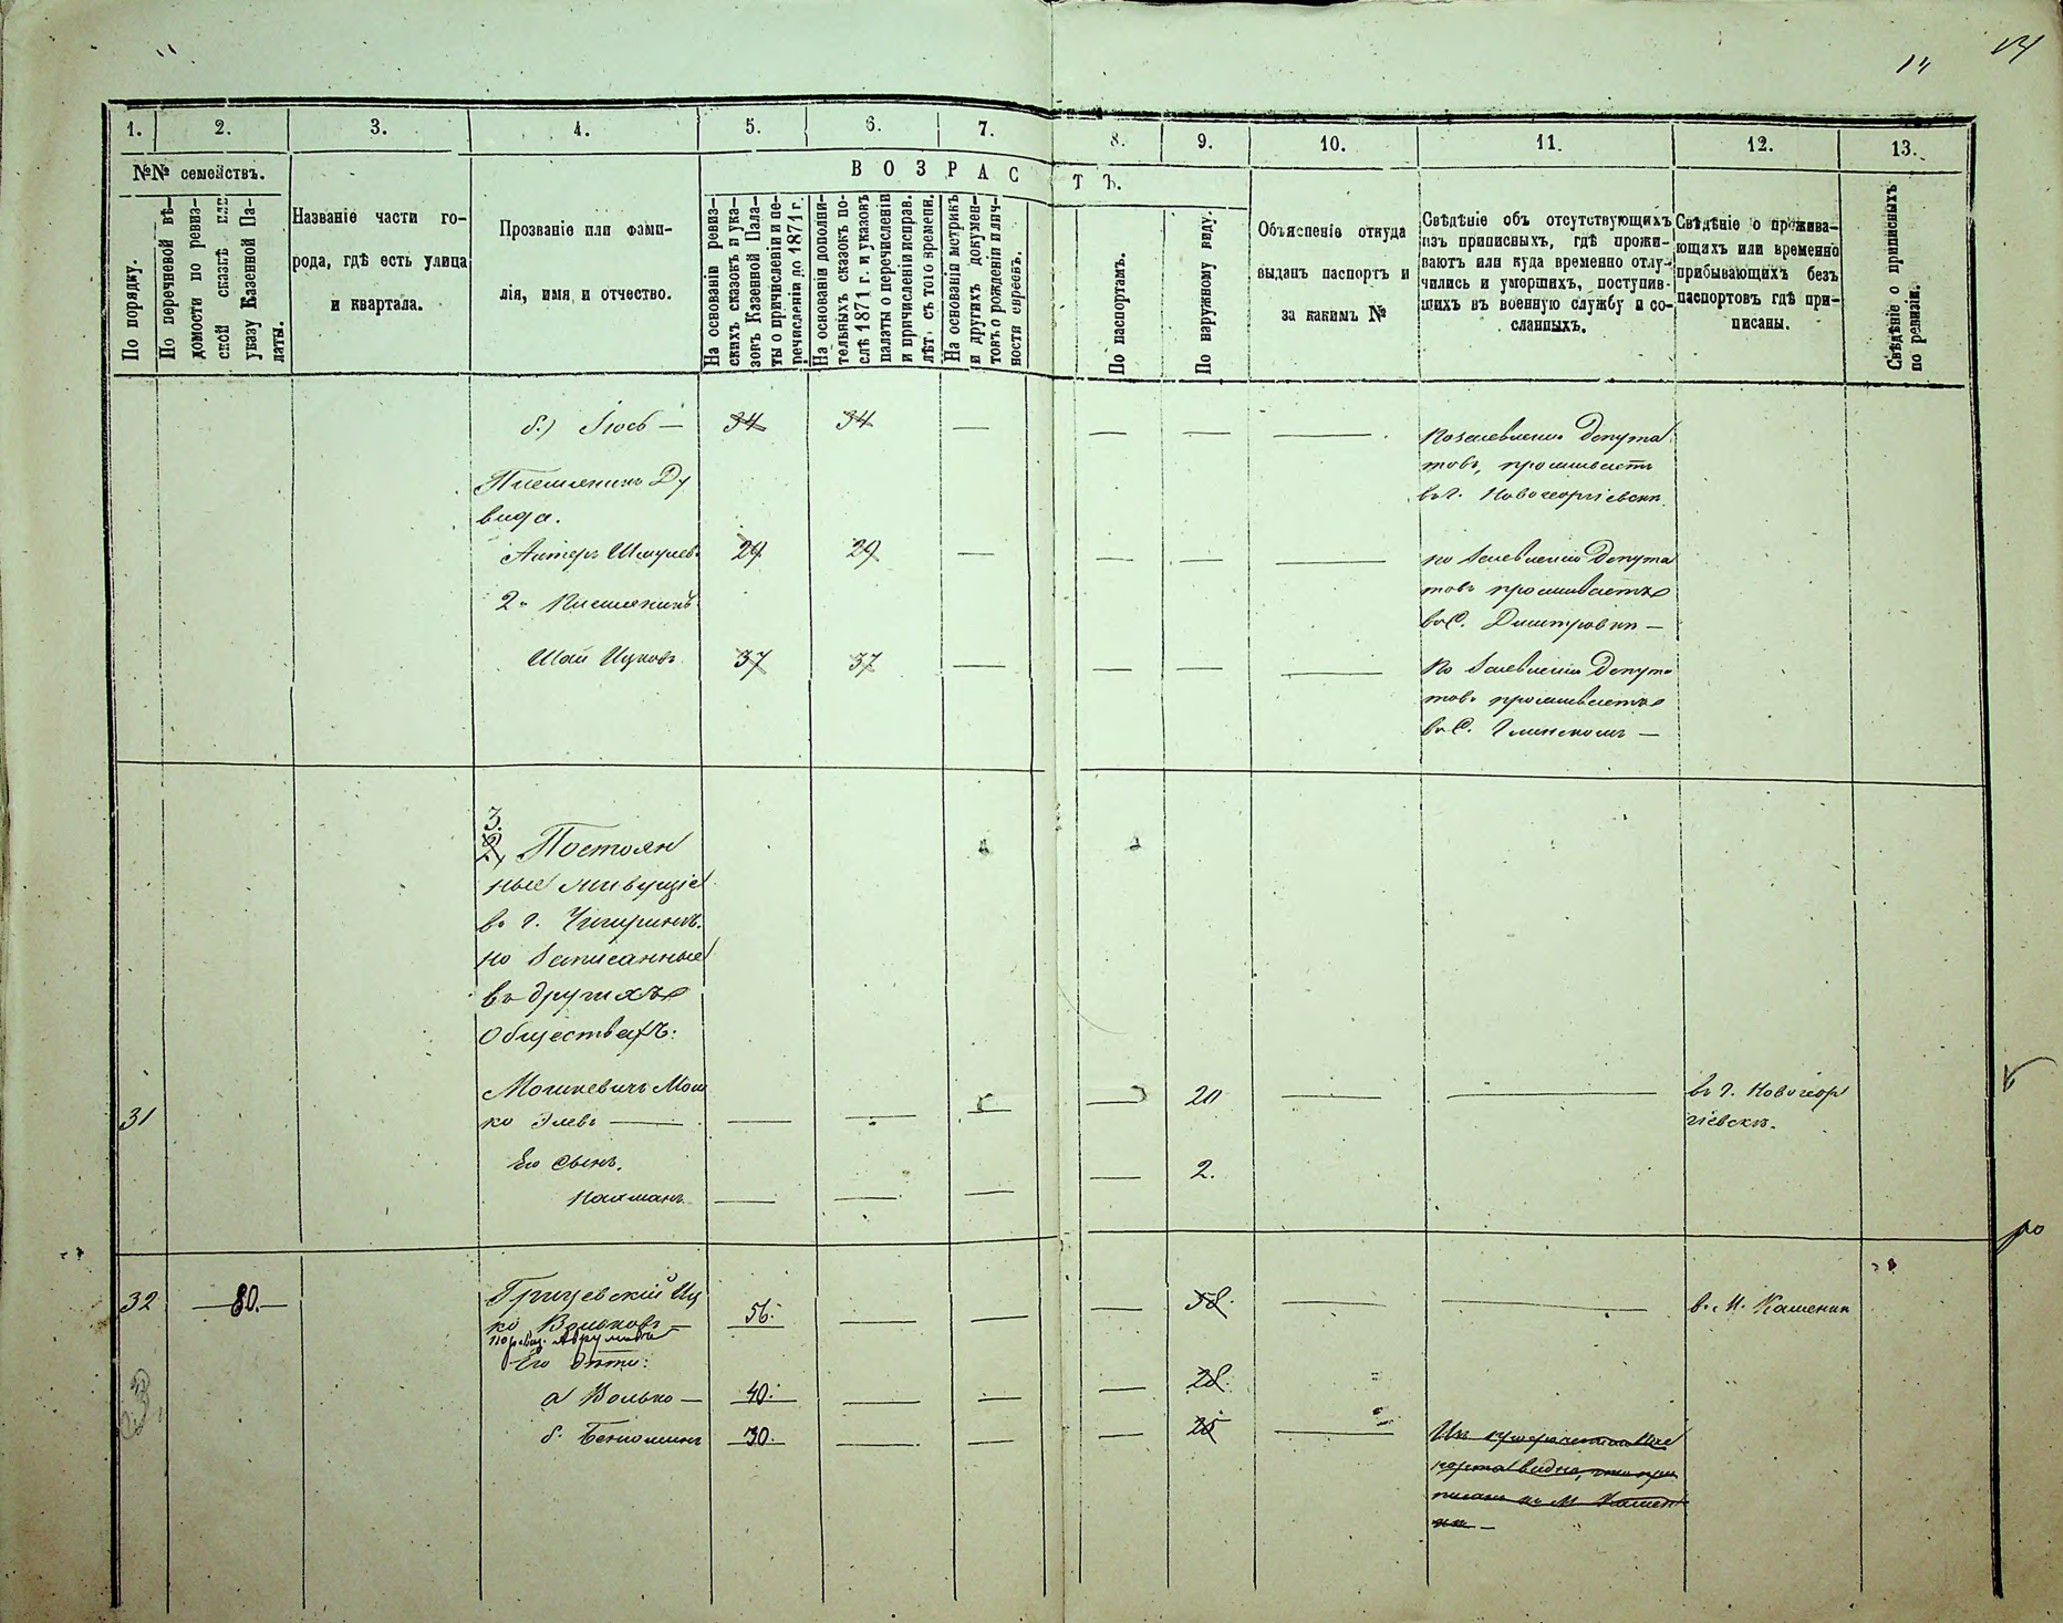 14
1.
2.
3.
4.
5.
6.
7.
8.
9.
10.
11.
12.
13.
№№ семействъ.
ВОЗРАСТЪ.
По порядку.
По перечневой вѣ-
домости по ревиз-
ской сказкѣ или
указу Казенной Па-
латы.
Названіе части го-
рода, гдѣ есть улица
и квартала.
Прозваніе или фами-
лія, имя и отчество.
На основаніи ревиз-
скихъ сказокъ и ука-
зовъ Казенной Пала-
ты о причисленіи и пе-
речисленіи до 1871 г.
На основаніи дополни-
тельныхъ сказокъ по-
слѣ 1871 г. и указовъ
палаты о перечисленіи
и причисленіи исправ.
лѣт. съ того времени.
На основаніи метрикъ
и другихъ докумен-
товъ о рожденіи и лич-
ности евреевъ.
По паспортамъ.
По наружному виду.
Объясненіе откуда
выданъ паспортъ и
за какимъ №
Свѣдѣніе объ отсутствующихъ
изъ приписныхъ, гдѣ прожи-
ваютъ или куда временно отлу-
чились и умершихъ, поступив-
шихъ въ военную службу и со-
сланныхъ.
Свѣдѣніе о прожива-
ющихъ или временно
прибывающихъ безъ
паспортовъ гдѣ при-
писаны.
Свѣдѣніе о приписныхъ
по ревизіи.
б.) Іюсь — 34 34 — — — —
По заевленію Депута
товъ, проживаетъ
въ г. Новогеоргіевскѣ
Племеникъ Ду
вида.
Антеръ Шмулев. 29 29 — — — —
по Заевленію Депута
товъ проживаетъ
въ С. Дмитровкѣ —
2й Племеникъ
Шаи Ицковъ 37 37 — — — —
По Заевленію Депута
товъ проживаетъ
въ С. Глинскомъ —
3.
2, Постоян
ные живущіе
въ г. Чигиринѣ.
но Записанные
въ другихъ
Обществахъ:
31
Мошкевичъ Мош
ко Элевъ — — — — — 20 — —
въ г. Новогеор
гіевскѣ.
Его Сынъ.
Нахманъ — — — — 2.
32 —80.—
Грицевскій Иц
ко Вольковъ — 56. — — — 58. — —
въ М. Каменкѣ
по ревиз. Аврумовъ
Его дѣти:
а Волько — 40. — — — 28.
б. Беніоминъ 30. — — — 25 —